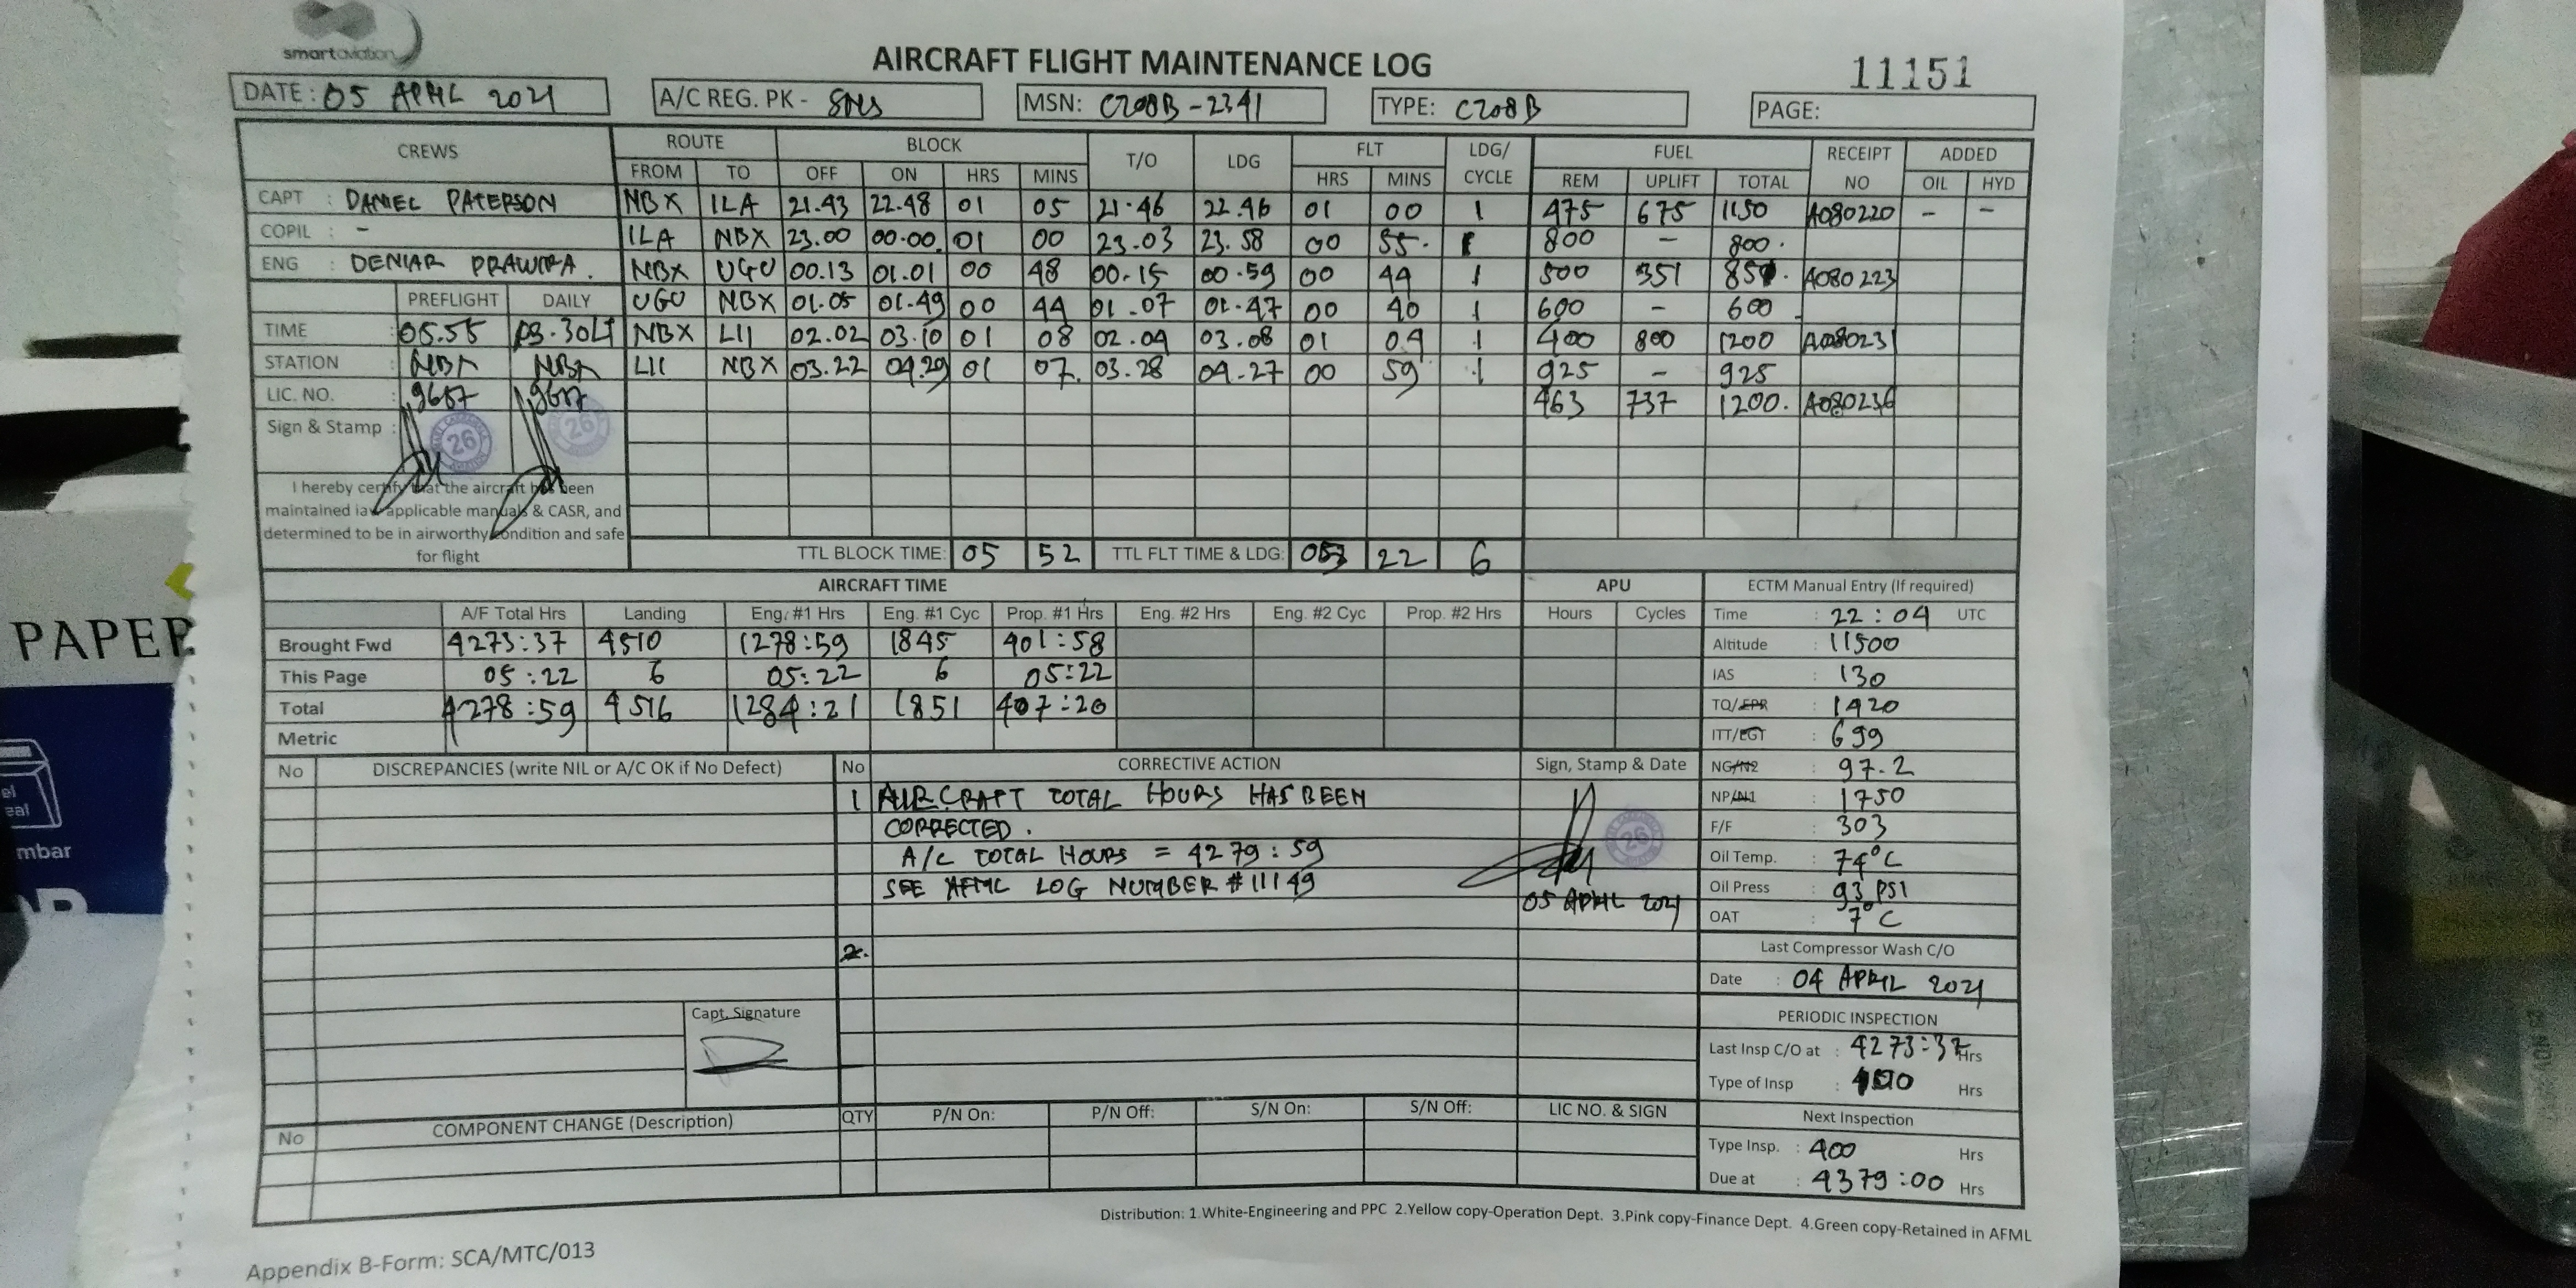 smartaviation
AIRCRAFT FLIGHT MAINTENANCE LOG
11151
DATE: 05 APRIL 2021 A/C REG. PK - SNS MSN: C208B-2341 TYPE: C208B PAGE:
CREWS ROUTE BLOCK T/O LDG FLT LDG/ CYCLE FUEL RECEIPT NO ADDED
FROM TO OFF ON HRS MINS HRS MINS REM UPLIFT TOTAL OIL HYD
CAPT : DANIEL PATERSON NBX ILA 21.43 22.48 01 05 21.46 22.46 01 00 1 475 675 1150 A080220 - -
COPIL : - ILA NBX 23.00 00.00 01 00 23.03 23.58 00 55. 1 800 - 800.
ENG : DENIAR PRAWIRA. NBX UGU 00.13 01.01 00 48 00.15 00.59 00 44 1 500 351 851. A080223
PREFLIGHT DAILY UGU NBX 01.05 01.49 00 44 01.07 01.47 00 40 1 600 - 600
TIME : 05.55 03.30LT NBX LII 02.02 03.10 01 08 02.04 03.08 01 04 1 400 800 1200 A080231
STATION : NBX NBX LII NBX 03.22 04.29 01 07. 03.28 04.27 00 59 1 925 - 925
LIC. NO. : 9687 9687 463 737 1200. A080236
Sign & Stamp : 26 26
I hereby certify that the aircraft has been
maintained iaw applicable manuals & CASR, and
determined to be in airworthy condition and safe
for flight
TTL BLOCK TIME: 05 52 TTL FLT TIME & LDG: 05 22 6
AIRCRAFT TIME APU ECTM Manual Entry (If required)
A/F Total Hrs Landing Eng. #1 Hrs Eng. #1 Cyc Prop. #1 Hrs Eng. #2 Hrs Eng. #2 Cyc Prop. #2 Hrs Hours Cycles Time : 22:04 UTC
Brought Fwd 4273:37 4510 1278:59 1845 401:58 Altitude : 11500
This Page 05:22 6 05:22 6 05:22 IAS : 130
Total 4278:59 4516 1284:21 1851 407:20 TQ/EPR : 1420
Metric ITT/EGT : 699
No DISCREPANCIES (write NIL or A/C OK if No Defect) No CORRECTIVE ACTION Sign, Stamp & Date NG/N2 : 97.2
1 AIRCRAFT TOTAL HOURS HAS BEEN NP/N1 : 1750
CORRECTED. 26 F/F : 303
A/C TOTAL HOURS = 4279:59 Oil Temp. : 74°C
SEE AFML LOG NUMBER #11149 Oil Press : 93 PSI
05 APRIL 2021 OAT : 7°C
2. Last Compressor Wash C/O
Date : 04 APRIL 2021
Capt. Signature PERIODIC INSPECTION
Last Insp C/O at : 4273:37 Hrs
Type of Insp : Hrs
COMPONENT CHANGE (Description) QTY P/N On: P/N Off: S/N On: S/N Off: LIC NO. & SIGN Next Inspection
No Type Insp. : 400 Hrs
Due at : 4379:00 Hrs
Distribution: 1.White-Engineering and PPC 2.Yellow copy-Operation Dept. 3.Pink copy-Finance Dept. 4.Green copy-Retained in AFML
Appendix B-Form: SCA/MTC/013
PAPER
mbar